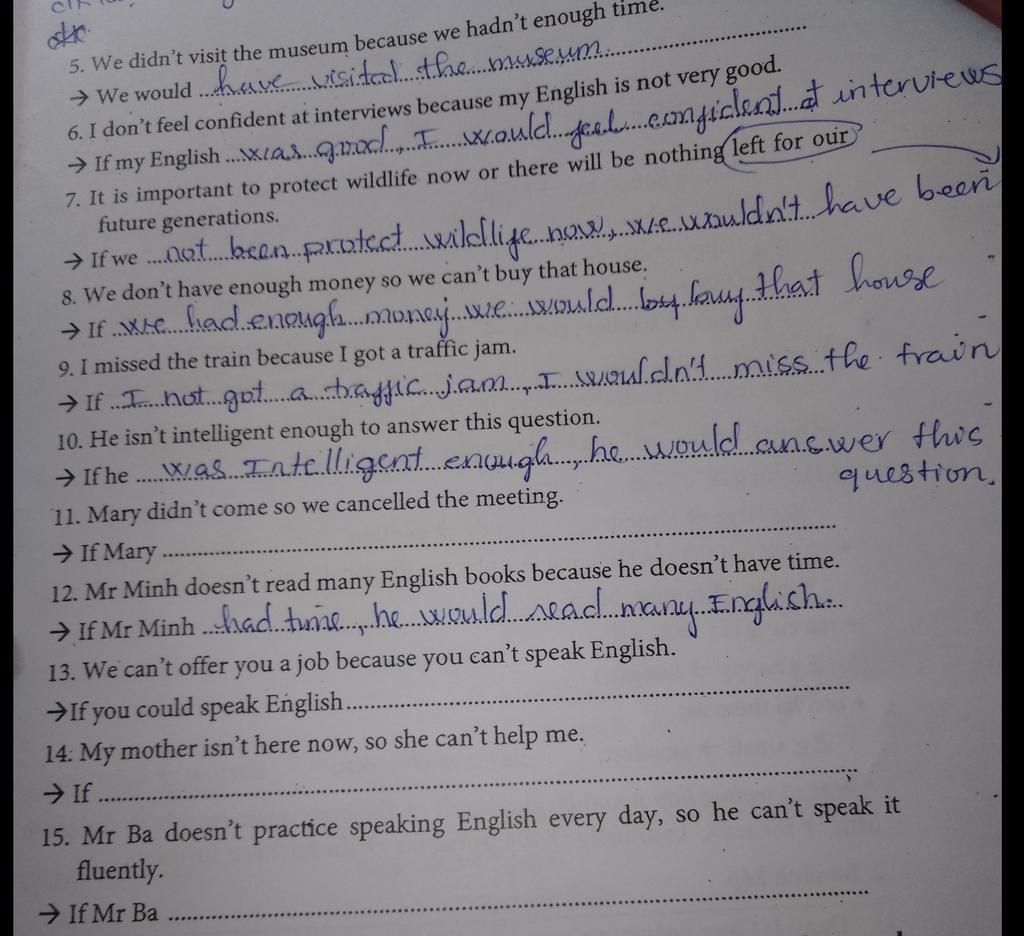 5. We didn't visit the museum because we hadn't enough time.
→ We would have visited the museum
6. I don't feel confident at interviews because my English is not very good.
→ If my English was good, I would feel confident at interviews
7. It is important to protect wildlife now or there will be nothing left for our
future generations.
→ If we not been protect wildlife now, we wouldn't have been
8. We don't have enough money so we can't buy that house.
→ If we had enough money we would buy that house
9. I missed the train because I got a traffic jam.
→ If I not got a traffic jam, I wouldn't miss the train
10. He isn't intelligent enough to answer this question.
→ If he was Intelligent enough, he would answer this
question.
11. Mary didn't come so we cancelled the meeting.
→ If Mary
12. Mr Minh doesn't read many English books because he doesn't have time.
→ If Mr Minh had time, he would read many English.
13. We can't offer you a job because you can't speak English.
→If you could speak English
14. My mother isn't here now, so she can't help me.
→ If
15. Mr Ba doesn't practice speaking English every day, so he can't speak it
fluently.
→ If Mr Ba